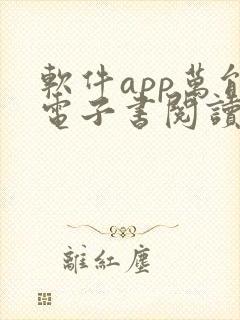 軟件app萬能
電子書閱讀
離紅塵